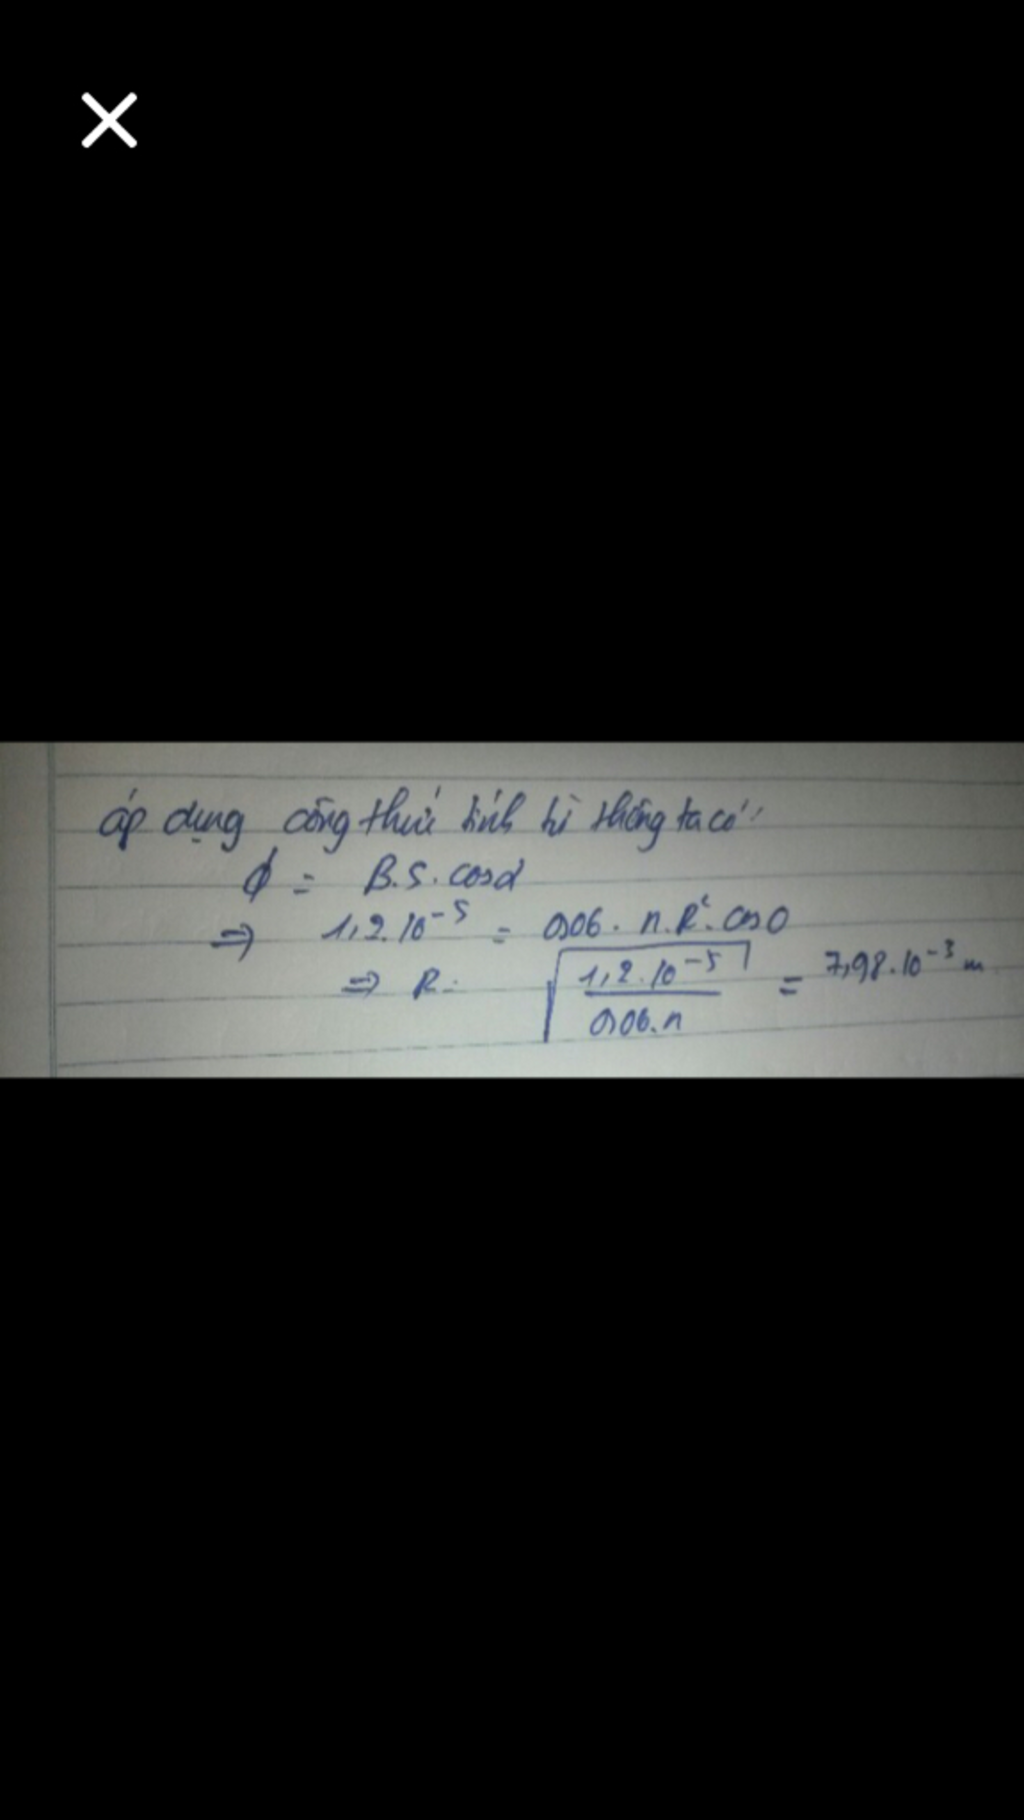 áp dụng công thức tính từ thông ta có:
ϕ = B.S.cosα
⇒ 1,2.10⁻⁵ = 0,06. π.R².cos0
⇒ R = √(1,2.10⁻⁵ / 0,06.π) = 7,98.10⁻³ m